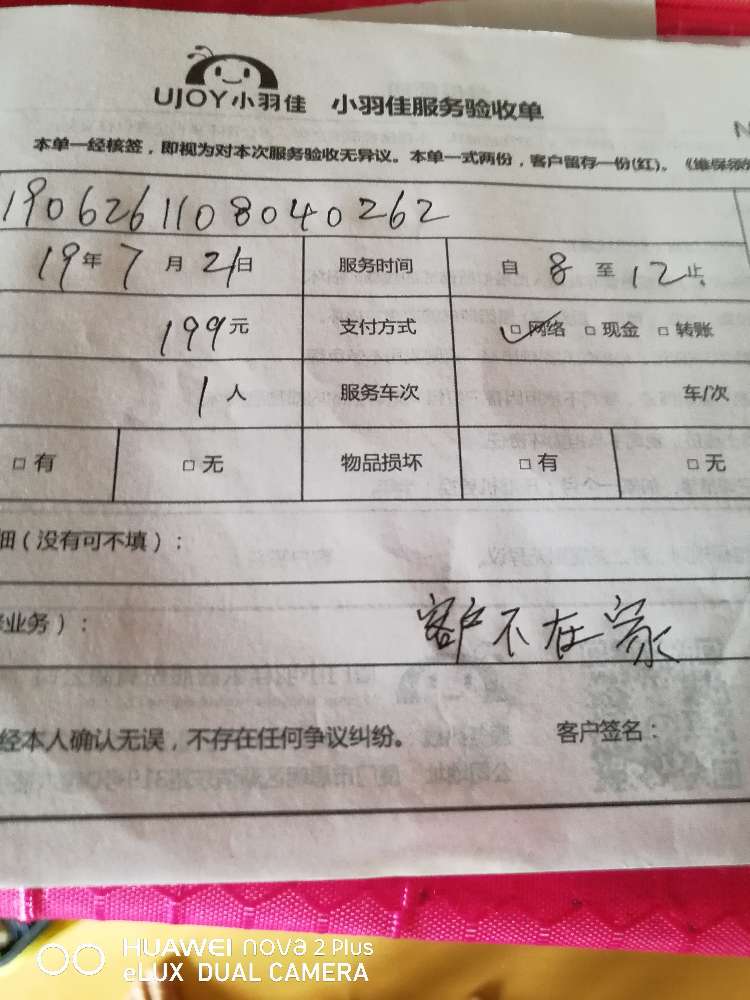 UJOY小羽佳 小羽佳服务验收单
本单一经核签，即视为对本次服务验收无异议。本单一式两份，客户留存一份(红)。
1906261108040262
19年7月21日 服务时间 自8至12止
199元 支付方式 □网络 □现金 □转账
1人 服务车次 车/次
□有 □无 物品损坏 □有 □无
细（没有可不填）：
业务）：
客户不在家
经本人确认无误，不存在任何争议纠纷。 客户签名：
HUAWEI nova 2 Plus
eLUX DUAL CAMERA